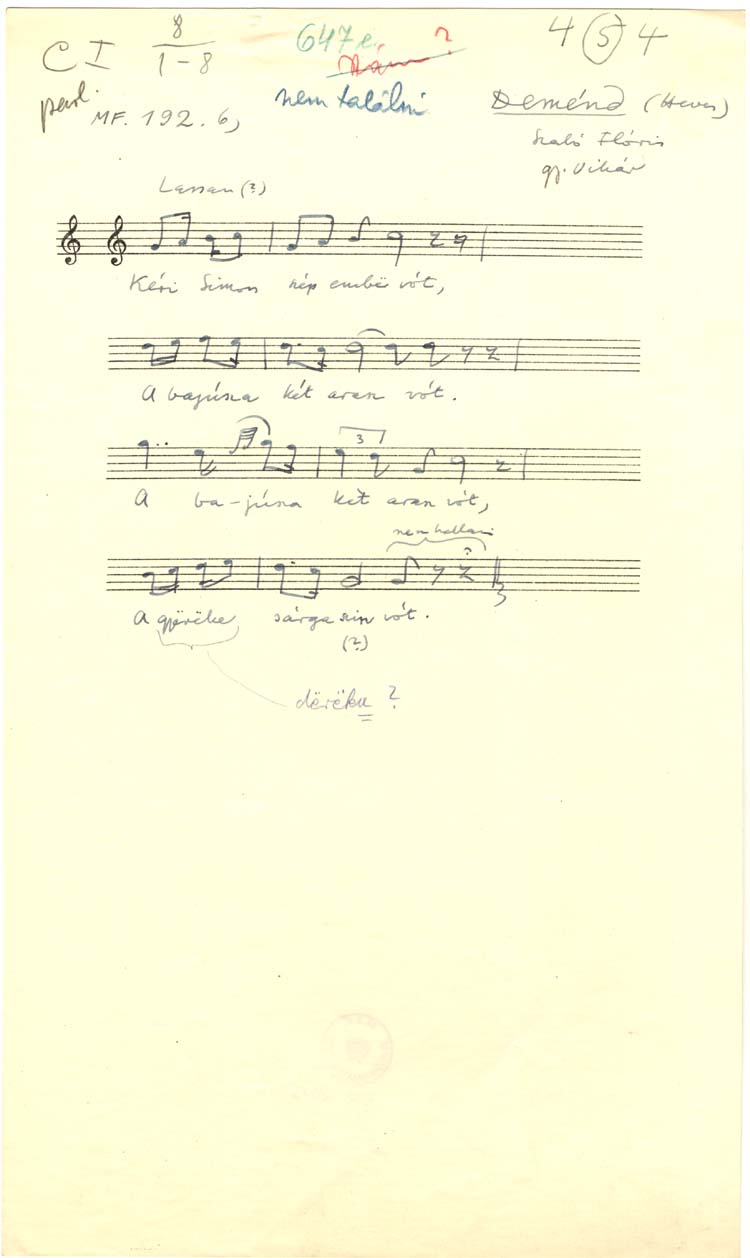 C I 8/1-8 647e. ? 4 5 4
parl. MF. 192. 6, nem találni Deménd (Heves)
Szabó Flóris
gy. Vikár
Lassan (?)
Kéri Simon szép embër vót,
A bajúsza két aran vót.
3
A ba-júsza két aran vót,
nem hallani
?
A gyërëke sárga szin vót.
(?)
dërëka ?